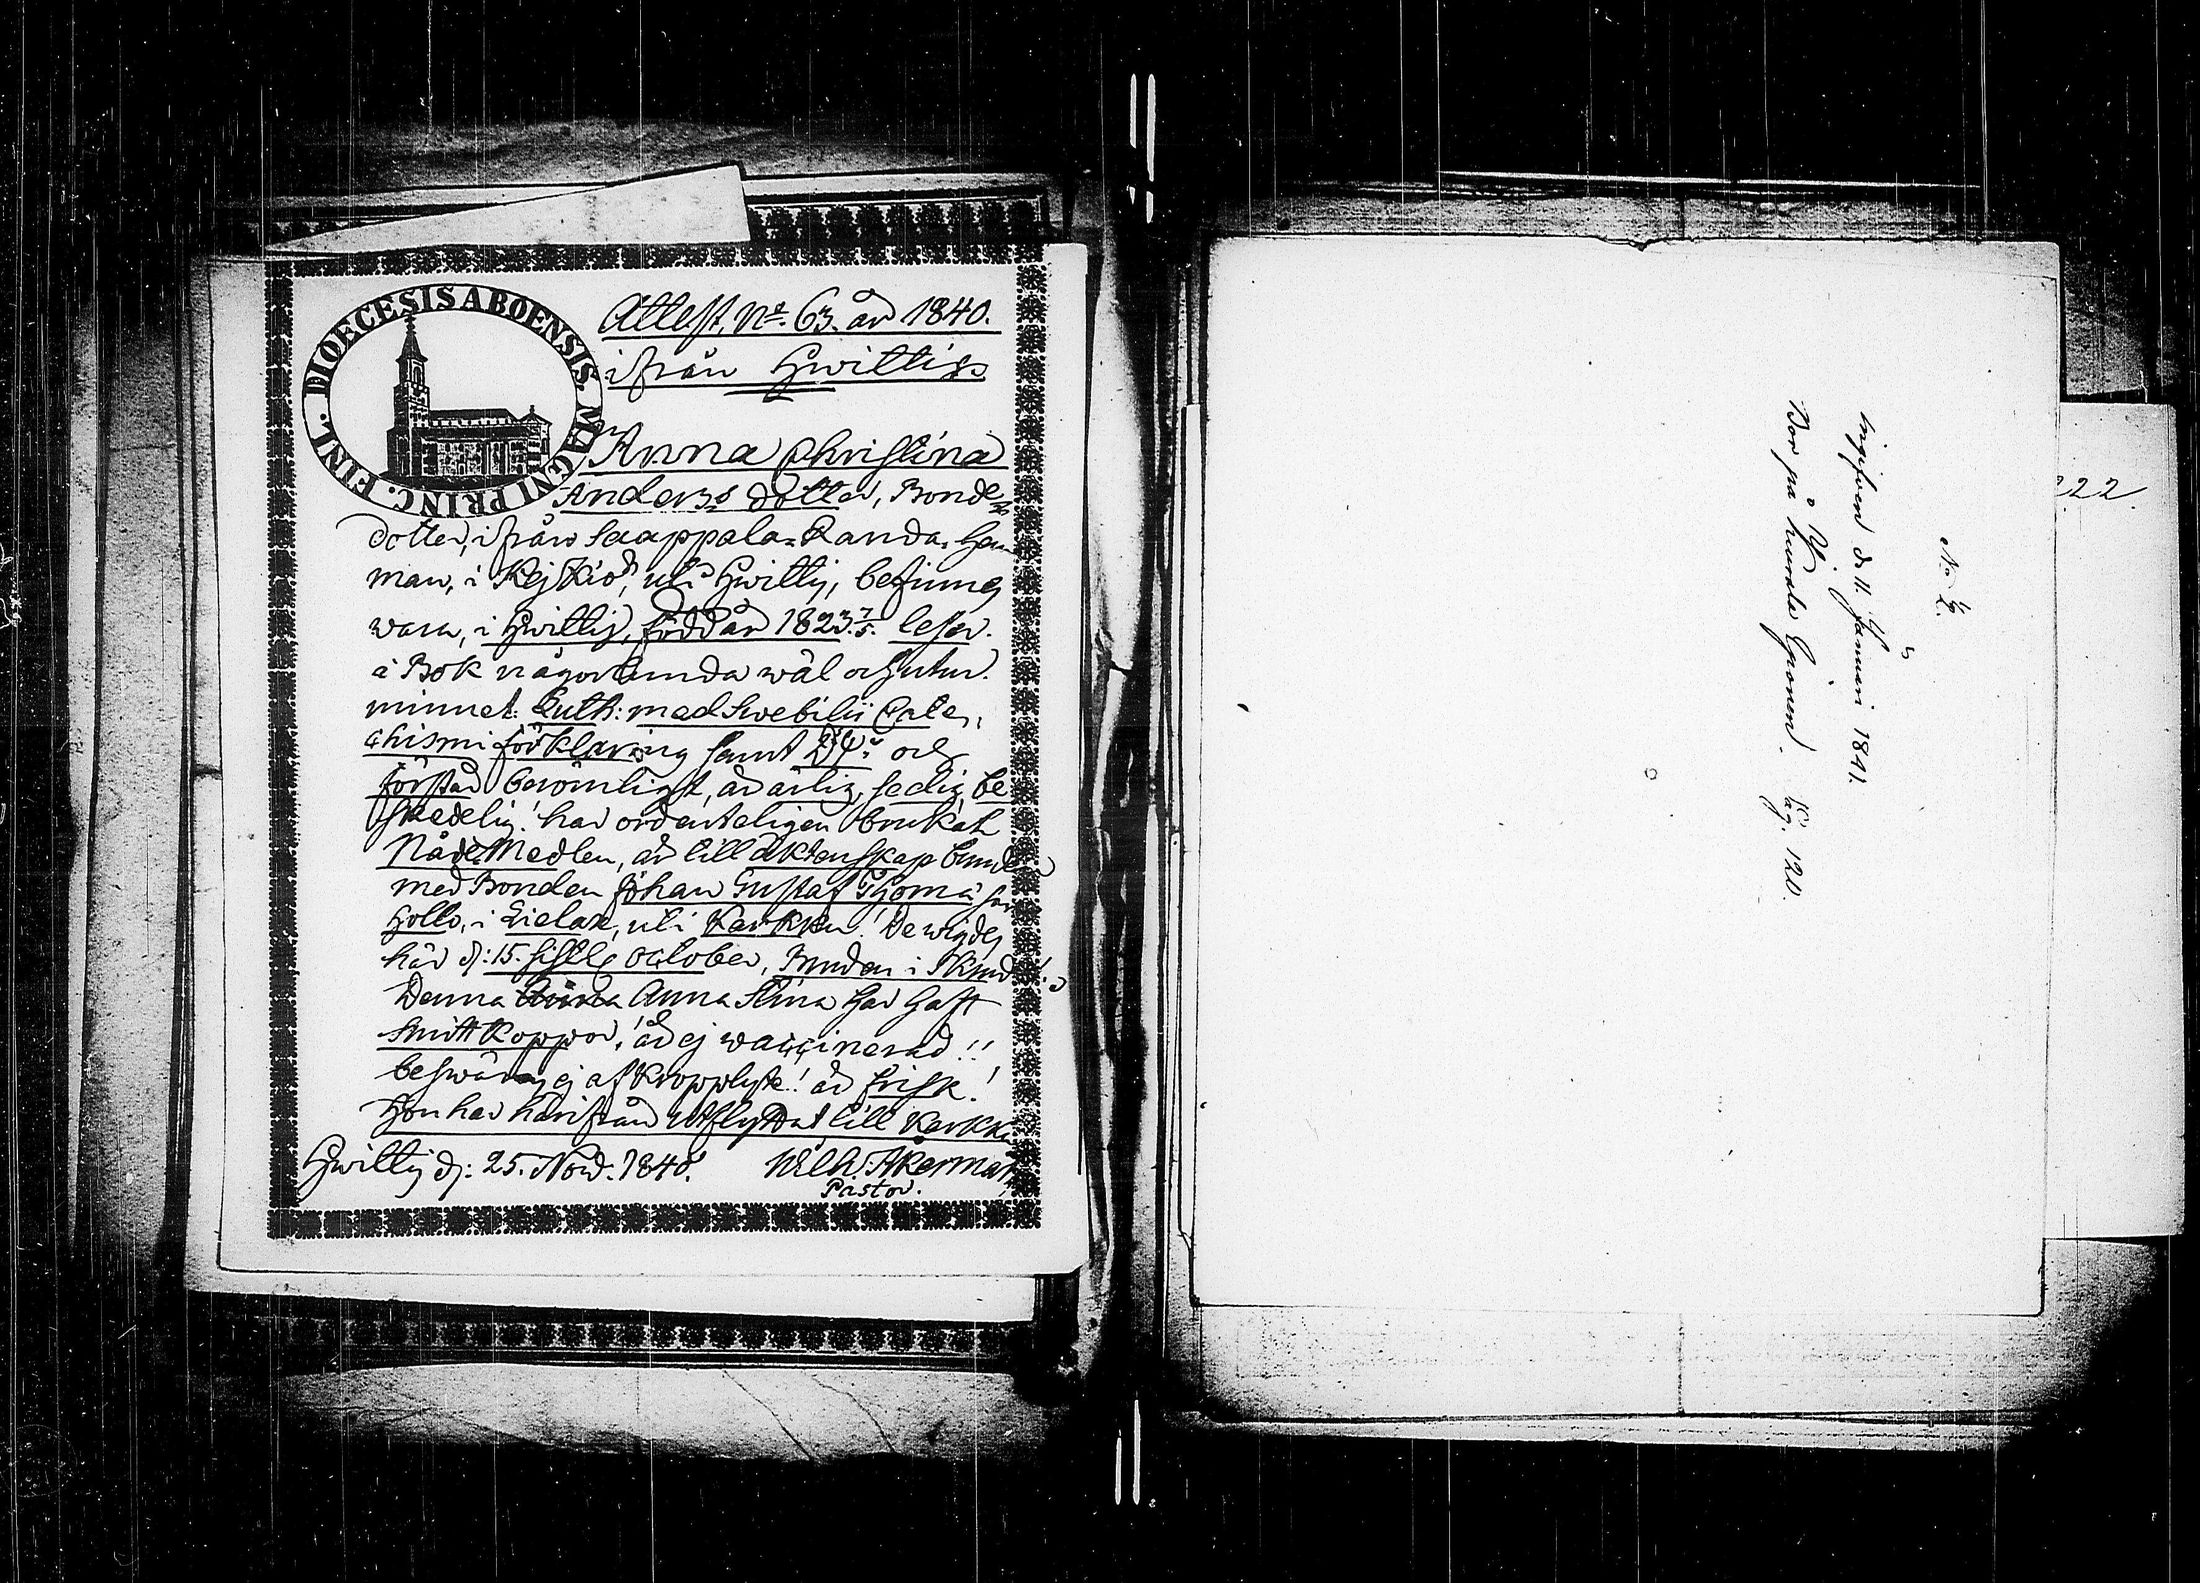 DIOECESIS ABOENSIS. MAGNI PRINC. FINL.
Attest. No. 63. år 1840.
ifrån Hwittis
Anna Christina
Anders dotter, Bonde
dotter, ifrån Saappala-Randa,
man, i Kejkiö, uti Hwittis, befinnes
wara, i Hwittis, född år 1823 7/5. läser.
i Bok någorlunda wäl och utur
minnet: Luth: med Swebilii Cate-
chismi förklaring samt och
förstår berömligt, är ärlig, sedig, be
skedelig! har ordenteligen brukat
Nåde Medlen, är till äktenskap bunden
med Bonden Johan Gustaf Thomæ
Hollo, i Lielax, uti Karkku! De wigdes
här d: 15. sistl. October, Bruden i Skrud!
Denna Anna Stina har haft
Smittkoppor! är ej waccinerad!!
beswäras ej af kropplyte! är frisk!
Hon har härifrån utflyttat till Karkku
Hwittis d: 25. Nov. 1840. Wilh: Åkerman
Pastor.
222.
No 2.
Ingifven d. 11. Januari 1841.
Bor på Hurula Grönend. Pag. 120.